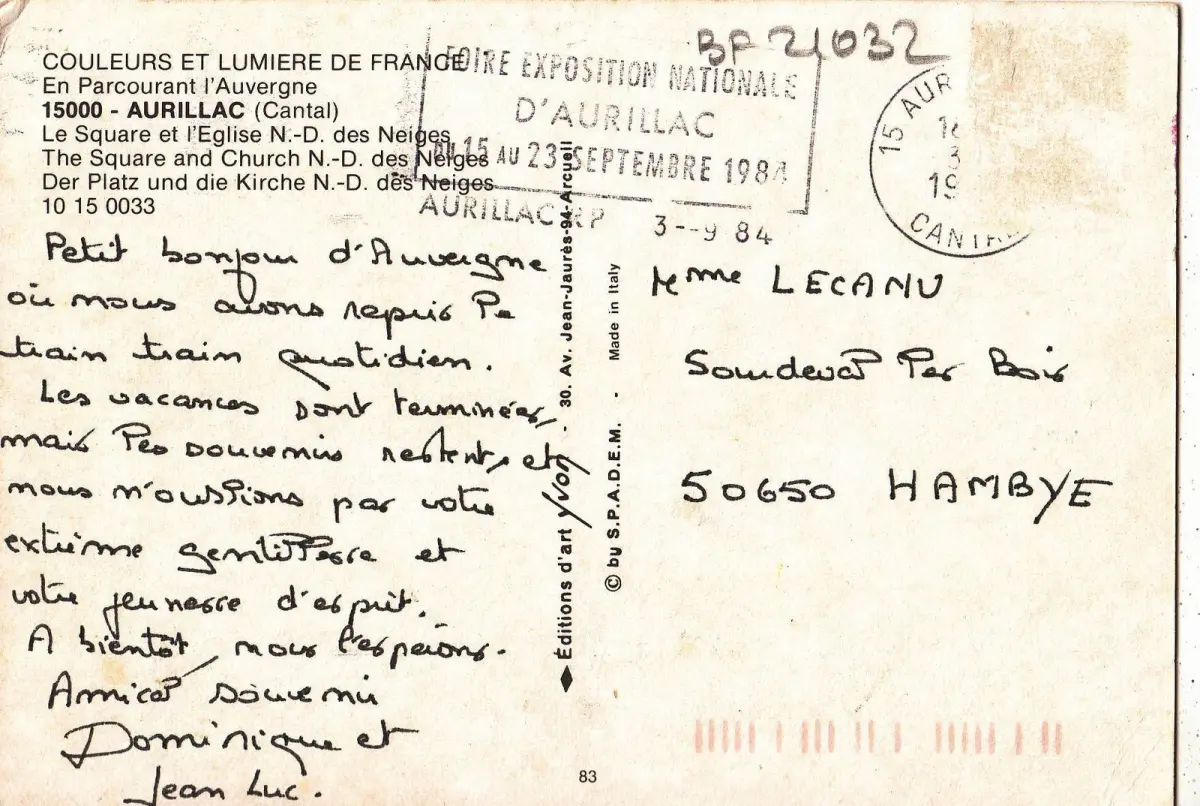 COULEURS ET LUMIERE DE FRANCE
En Parcourant l'Auvergne
15000 - AURILLAC (Cantal)
Le Square et l'Eglise N.-D. des Neiges
The Square and Church N.-D. des Neiges
Der Platz und die Kirche N.-D. des Neiges
10 15 0033
Petit bonjour d'Auvergne
où nous avons repris le
train train quotidien.
Les vacances sont terminées,
mais les souvenirs restent, et
nous n'oublions pas votre
extrême gentillesse et
votre jeunesse d'esprit.
A bientôt, nous l'espérons.
Amical souvenir
Dominique et
Jean Luc.
FOIRE EXPOSITION NATIONALE
D'AURILLAC
DU 15 AU 23 SEPTEMBRE 1984
AURILLAC RP 3--9 84
BP 21032
15 AUR
CANTAL
Éditions d'art Yvon - 30. Av. Jean-Jaurès-94-Arcueil
© bu S.P.A.D.E.M. - Made in Italy
Mme LECANU
Sourdeval les Bois
50650 HAMBYE
83